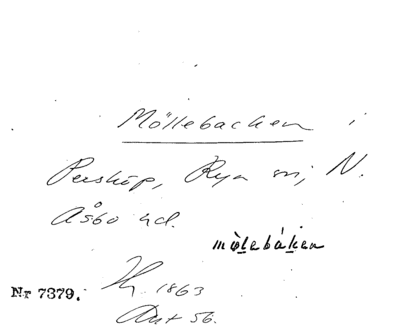 Möllebacken i
Perstöp, Rya sn, N.
Åsbo hd.
mòlebáken
Nr 7379.
1863
Ant 56.